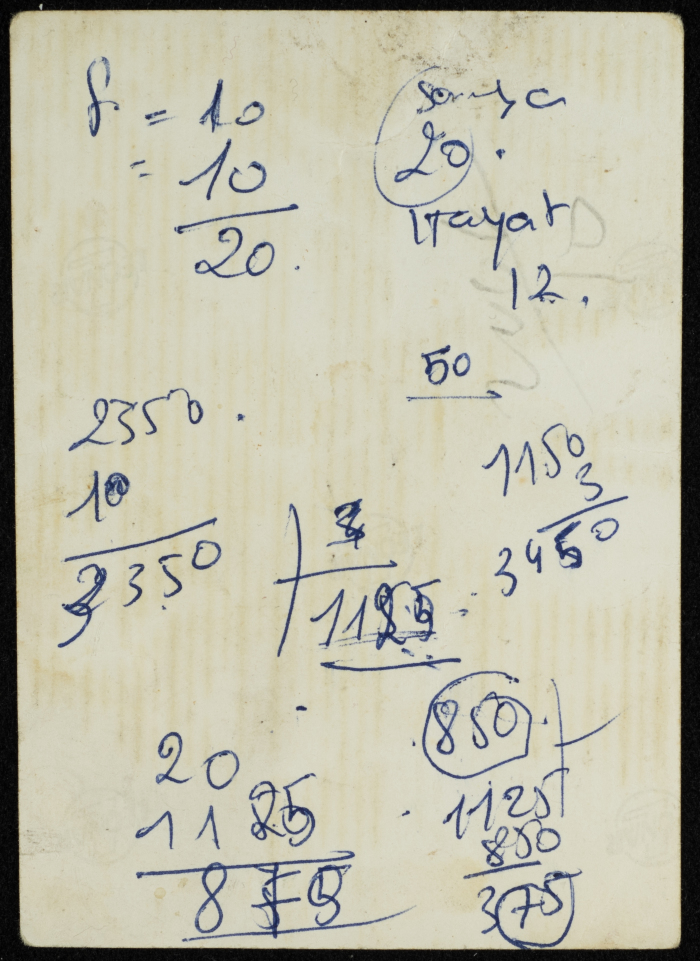 = 10
= 10
20.
20.
12.
50
2350.
10
3350
1150
3
3450
1125
850
20
1125
875
1125
850
375